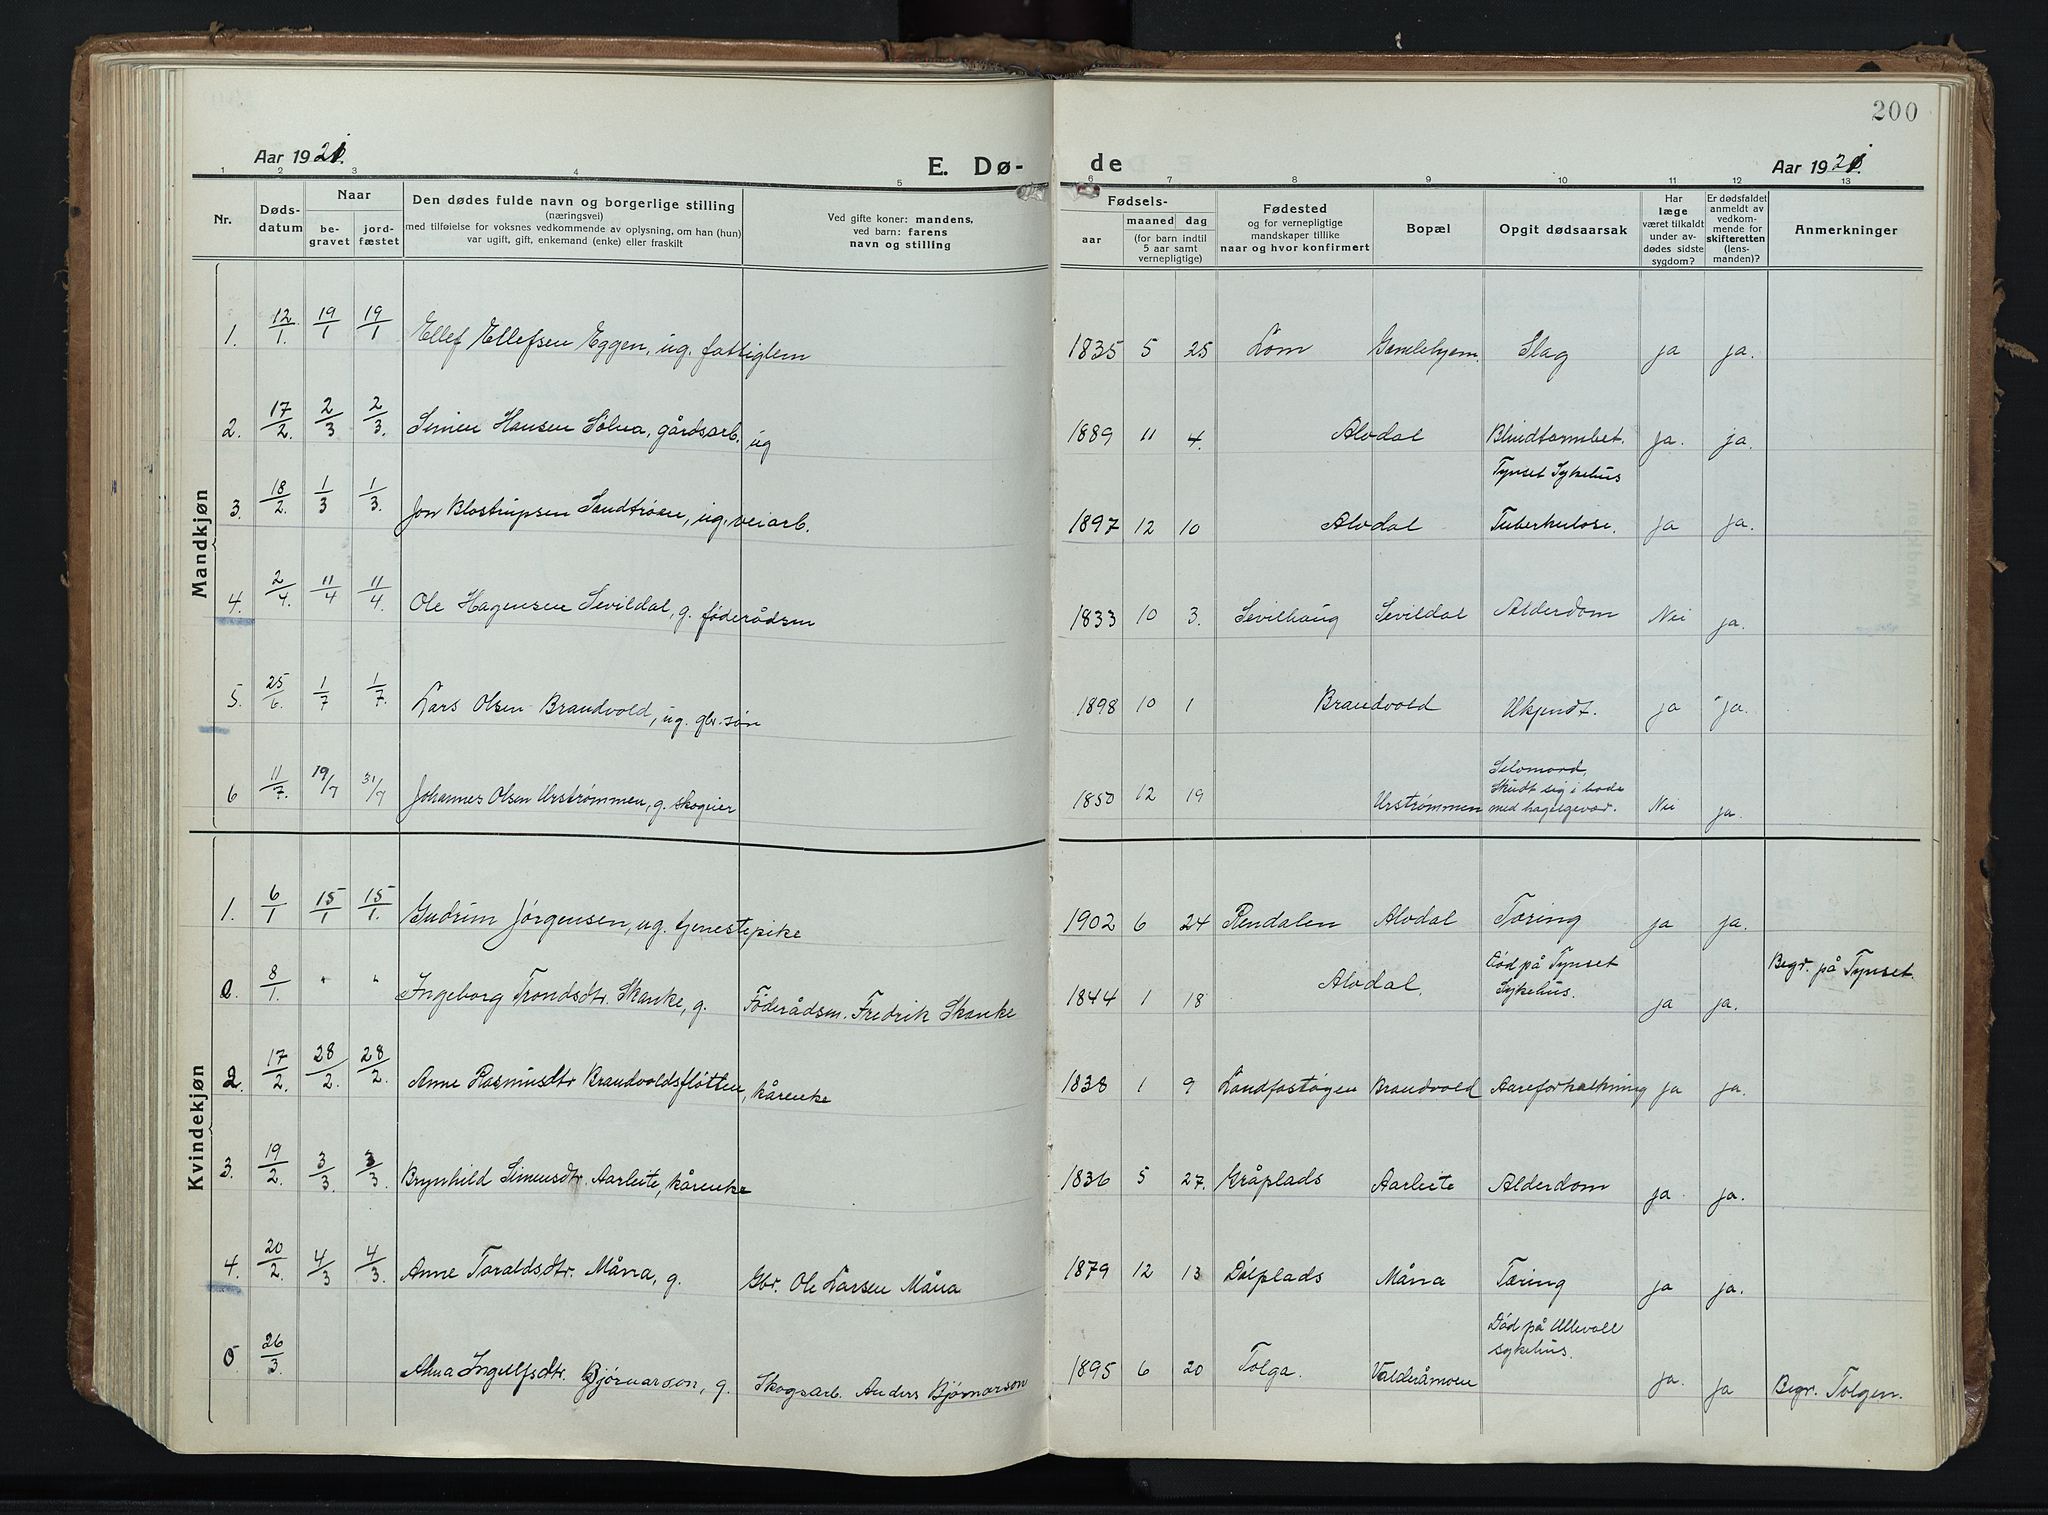 200
Aar 1921. E. Dø- de Aar 1921.
1 2 3 4 5 6 7 8 9 10 11 12 13
Nr. Døds-datum Naar be-gravet jord-fæstet Den dødes fulde navn og borgerlige stilling (næringsvei) med tilføielse for voksnes vedkommende av oplysning, om han (hun) var ugift, gift, enkemand (enke) eller fraskilt Ved gifte koner: mandens, ved barn: farens navn og stilling Fødsels- aar maaned dag (for barn indtil 5 aar samt vernepligtige) Fødested og for vernepligtige mandskaper tillike naar og hvor konfirmert Bopæl Opgit dødsaarsak Har læge været tilkaldt under av-dødes sidste sygdom? Er dødsfaldet anmeldt av vedkom-mende for skifteretten (lens-manden)? Anmerkninger
Mandkjøn
1. 12/1. 19/1 19/1 Ellef Ellefsen Eggen, ug. fattiglem 1835 5 25 Lom Gamlehjem. Slag ja ja.
2. 17/2. 2/3 2/3. Simen Hansen Sølna, gårdsarb. ug 1889 11 4. Alvdal Blindtarmbet. Tynset Sykehus ja. ja.
3. 18/2. 1/3 1/3. Jon Blostrupsen Sandtrøen, ug. veiarb. 1897 12 10 Alvdal Tuberkulose. ja ja.
4. 2/4. 11/4 11/4. Ole Hagensen Sevildal, g. føderådsm 1833 10 3. Sevilhaug Sevildal Alderdom Nei ja.
5. 25/6. 1/7 1/7. Lars Olsen Brandvold, ug. gbr. søn 1898 10 1 Brandvold Ukjendt. ja ja.
6 11/7. 19/7 31/7 Johannes Olsen Urstrømmen, g. skogeier 1850 12 19 Urstrømmen Selvmord, Skudt sig i hode med hagelgevær. Nei ja.
Kvindekjøn
1. 6/1 15/1 15/1. Gudrun Jørgensen, ug. tjenestepike 1902 6 24 Rendalen Alvdal Tæring ja ja.
0. 8/1. " " Ingeborg Trondsdtr. Skanke, g. Føderådsm. Fredrik Skanke 1844 1 18 Alvdal. Død på Tynset Sykehus. ja ja. Begr. på Tynset.
2. 17/2. 28/2. 28/2. Anne Rasmusdtr Brandvoldsfløtten, kårenke 1838 1 9 Landfastøgen Brandvold Aareforkalkning ja ja.
3. 19/2. 3/3 3/3. Brynhild Simensdtr. Aarleite, kårenke 1836 5 27. Kråplads Aarleite Alderdom ja. ja.
4. 20/2. 4/3 4/3. Anne Taraldsdtr. Måna, g. Gbr. Ole Larsen Måna 1879 12 13 Dølplads Måna Tæring ja ja.
0 26/3. Alma Ingulfsdtr. Bjørnarson, g. Skogsarb. Anders Bjørnarson 1895 6 20 Tolga. Valderåmoen Død på Ullevoll sykehus. ja. ja Begr. Tolgen.